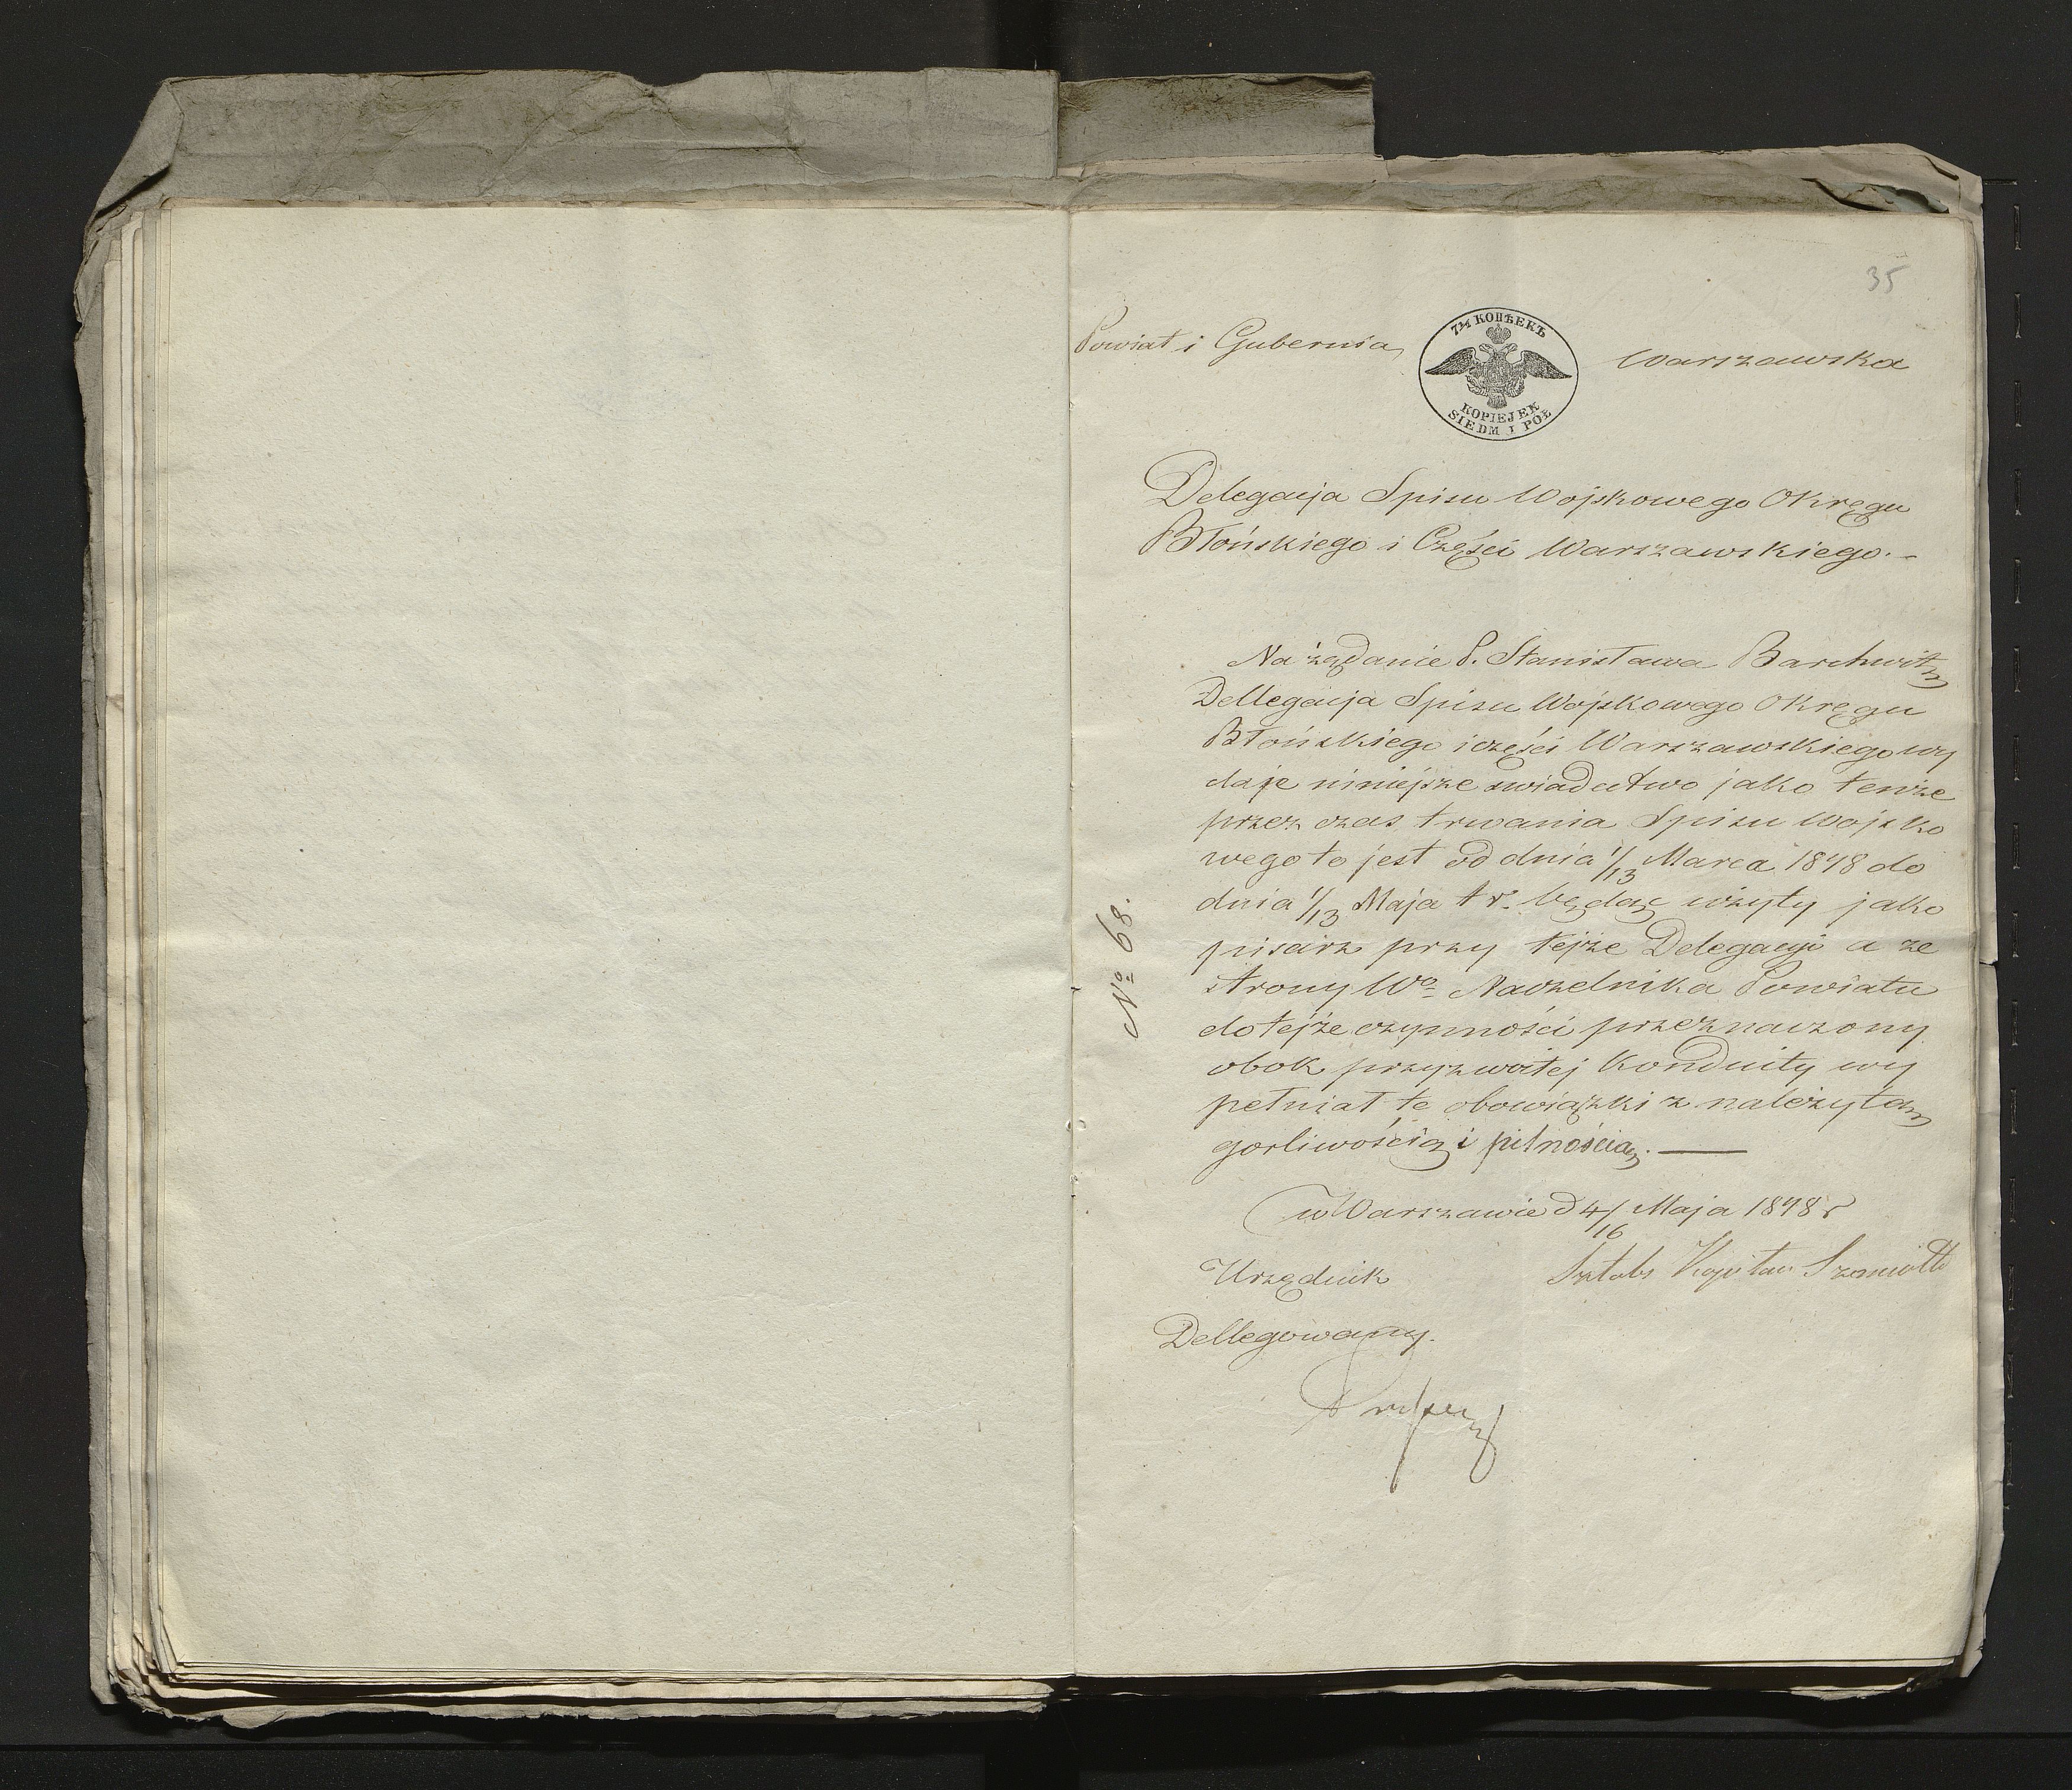 35
Powiat i Gubernia
7½ КОПѢЕКЪ
KOPIEJEK
SIEDM I PÓŁ
Warszawska
Delegacja Spisu Wojskowego Okręgu
Błońskiego i Części Warszawskiego. -
Na żądanie P. Stanisława Barchwitz
Dellegacja Spisu Wojskowego Okręgu
Błońskiego i części Warszawskiego wy
daje niniejsze swiadectwo jako tenże
przez czas trwania Spisu Wojsko
wego to jest od dnia 1/13 Marca 1848 do
dnia 1/13 Maja t r. będąc użyty jako
pisarz przy tejże Delegacji a ze
strony Wo Naczelnika Powiatu
do tejże czynności przeznaczony
obok przyzwoitej Konduity wy
pełniał te obowiązki z należytą
gorliwością i pilnością. —
No 68.
w Warszawie d 4/16 Maja 1848 r
Urzędnik
Sztabs Kapitan
Dellegowany.